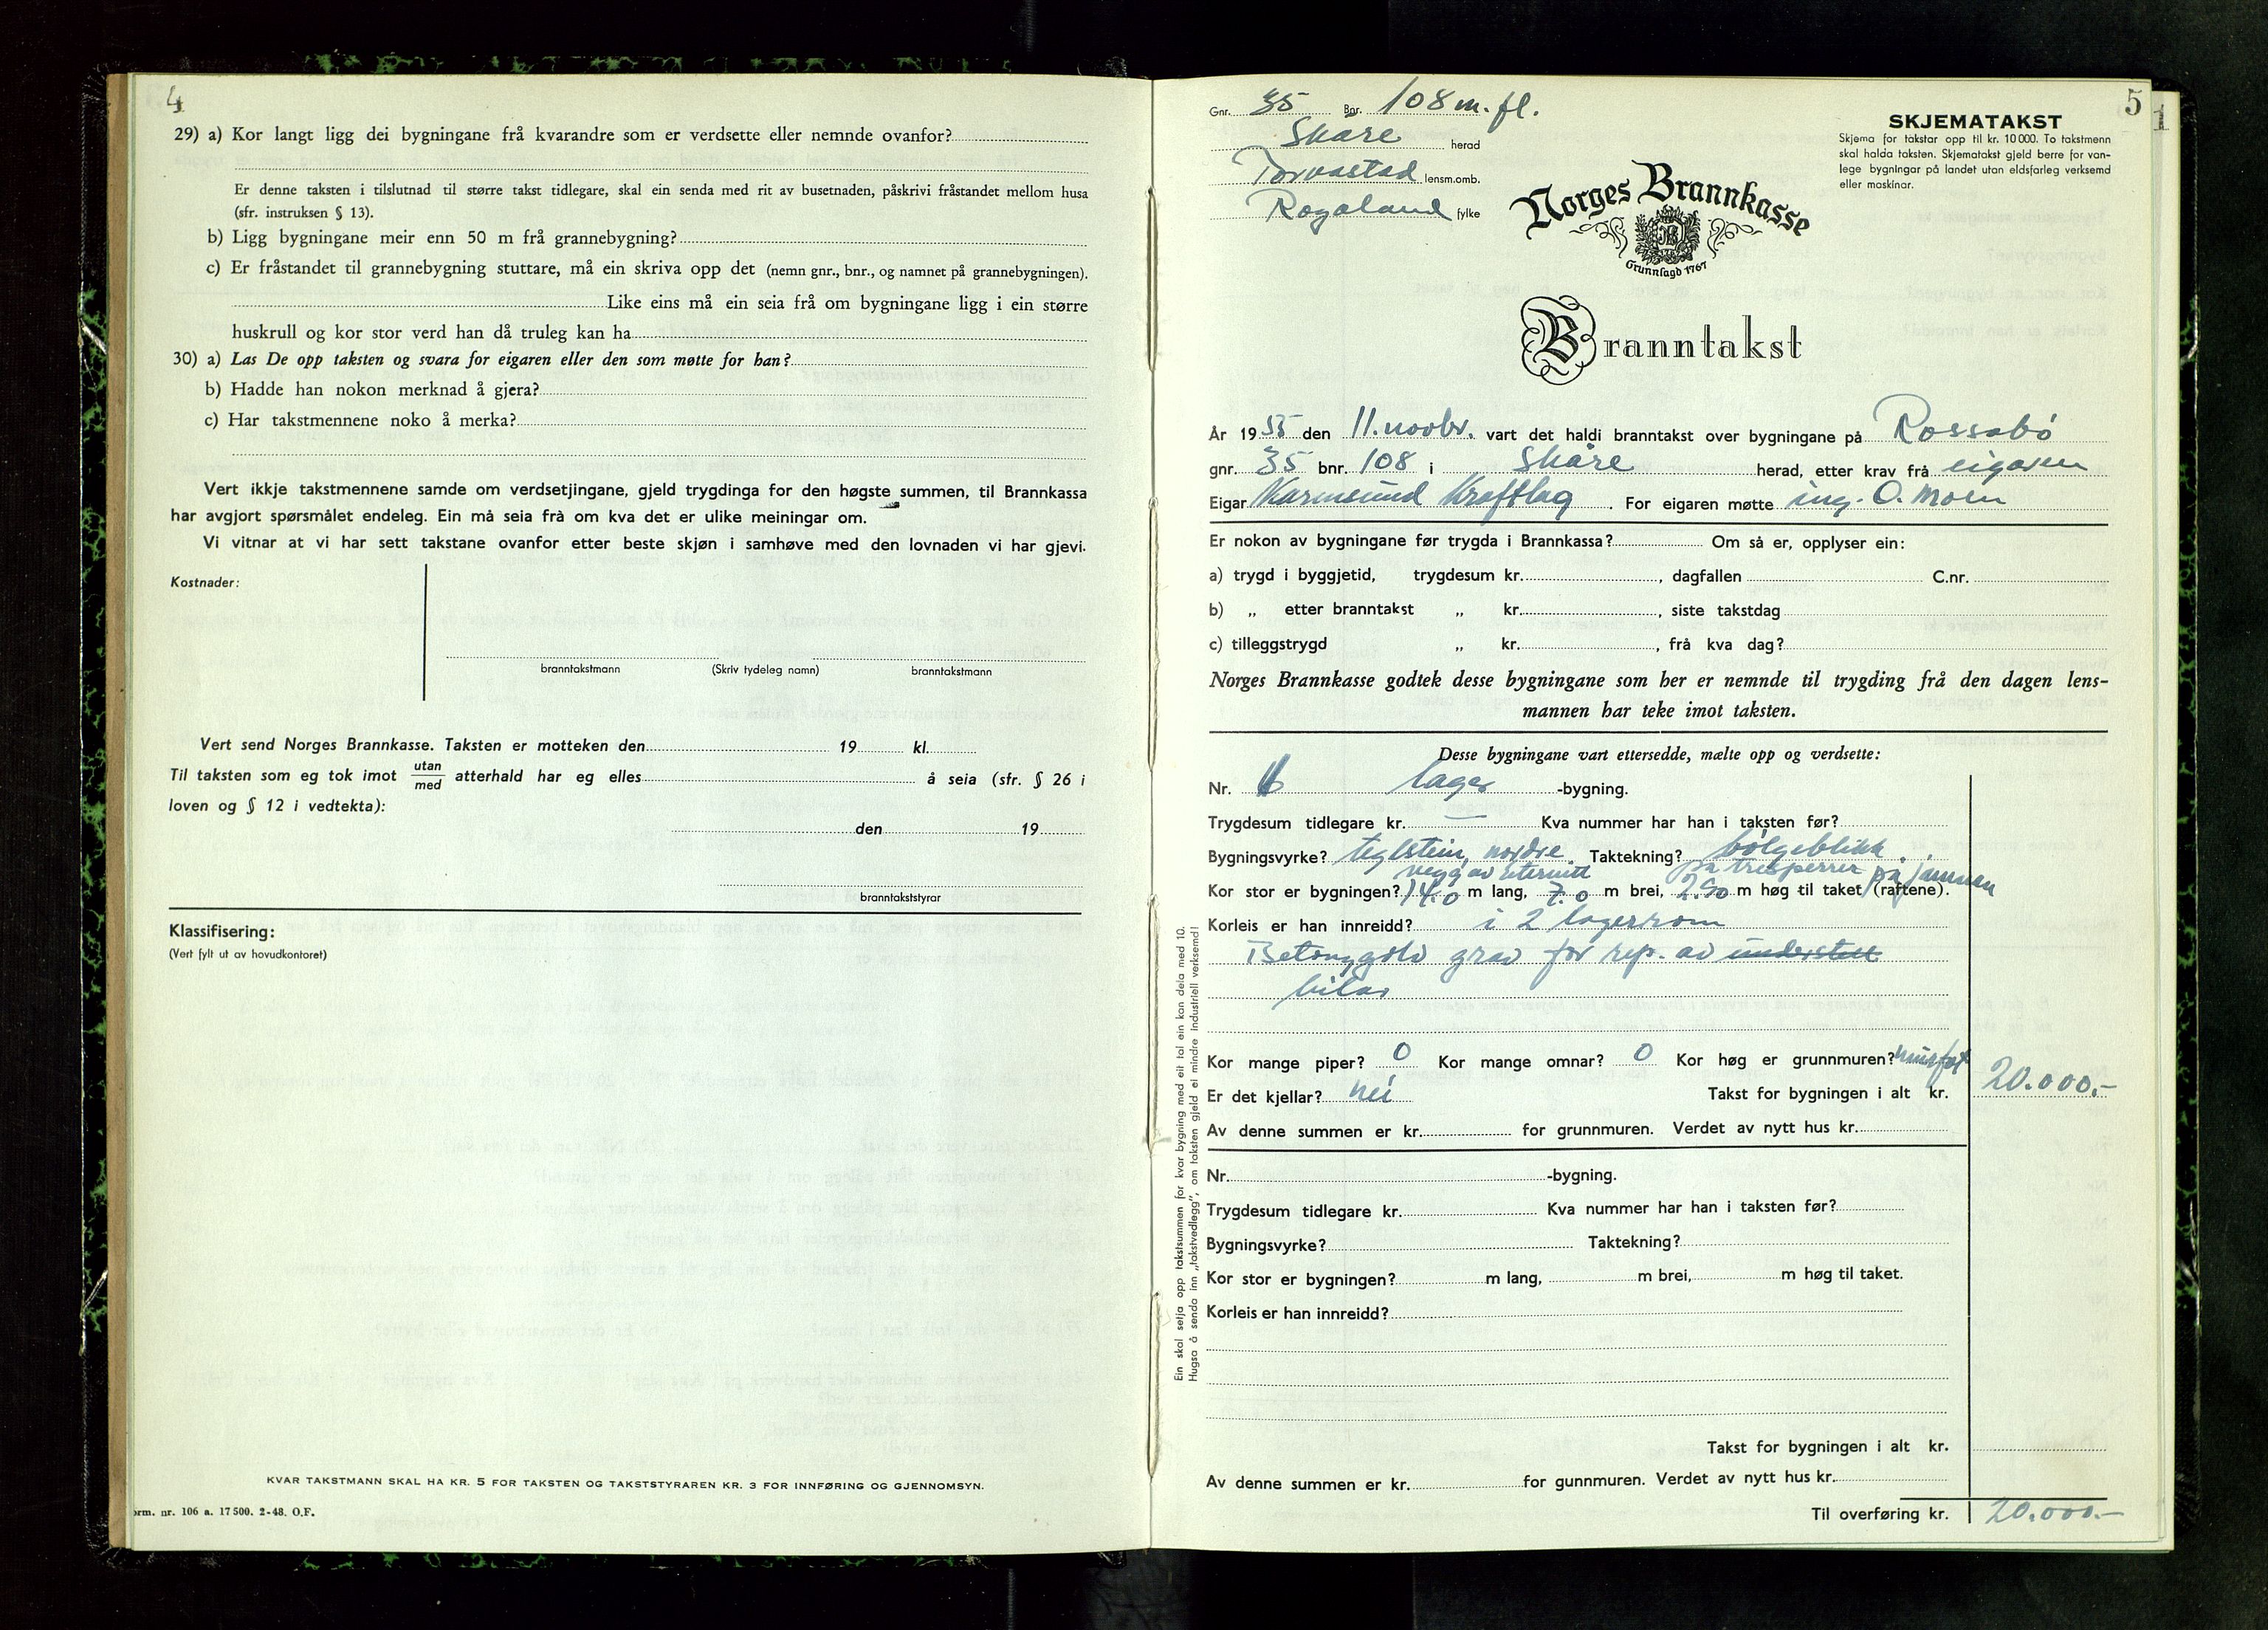 4
29) a) Kor langt ligg dei bygningane frå kvarandre som er verdsette eller nemnde ovanfor?
Er denne taksten i tilslutnad til større takst tidlegare, skal ein senda med rit av busetnaden, påskrivi fråstandet mellom husa
(sfr. instruksen § 13).
b) Ligg bygningane meir enn 50 m frå grannebygning?
c) Er fråstandet til grannebygning stuttare, må ein skriva opp det (nemn gnr., bnr., og namnet på grannebygningen).
Like eins må ein seia frå om bygningane ligg i ein større
huskrull og kor stor verd han då truleg kan ha
30) a) Las De opp taksten og svara for eigaren eller den som møtte for han?
b) Hadde han nokon merknad å gjera?
c) Har takstmennene noko å merka?
Vert ikkje takstmennene samde om verdsetjingane, gjeld trygdinga for den høgste summen, til Brannkassa
har avgjort spørsmålet endeleg. Ein må seia frå om kva det er ulike meiningar om.
Vi vitnar at vi har sett takstane ovanfor etter beste skjøn i samhøve med den lovnaden vi har gjevi.
Kostnader:
branntakstmann (Skriv tydeleg namn) branntakstmann
Vert send Norges Brannkasse. Taksten er motteken den 19 kl.
Til taksten som eg tok imot utan/med atterhald har eg elles å seia (sfr. § 26 i
loven og § 12 i vedtekta):
den 19
branntakststyrar
Klassifisering:
(Vert fylt ut av hovudkontoret)
KVAR TAKSTMANN SKAL HA KR. 5 FOR TAKSTEN OG TAKSTSTYRAREN KR. 3 FOR INNFØRING OG GJENNOMSYN.
orm. nr. 106 a. 17500. 2-48. O.F.
5
1
Gnr. 35 Bnr. 108 m. fl.
Skåre herad
Torvastad lensm.omb.
Rogaland fylke
SKJEMATAKST
Skjema for takstar opp til kr. 10 000. To takstmenn
skal halda taksten. Skjematakst gjeld berre for van-
lege bygningar på landet utan eldsfarleg verksemd
eller maskinar.
Norges Brannkasse
Grunnlagd 1767
Branntakst
År 1955 den 11. novbr. vart det haldi branntakst over bygningane på Rossabø
gnr. 35 bnr. 108 i Skåre herad, etter krav frå eigaren
Eigar Karmsund Kraftlag. For eigaren møtte ing. O. Moen
Er nokon av bygningane før trygda i Brannkassa? Om så er, opplyser ein:
a) trygd i byggjetid, trygdesum kr. , dagfallen C.nr.
b) „ etter branntakst „ kr. , siste takstdag
c) tilleggstrygd „ kr. , frå kva dag?
Norges Brannkasse godtek desse bygningane som her er nemnde til trygding frå den dagen lens-
mannen har teke imot taksten.
Desse bygningane vart ettersedde, mælte opp og verdsette:
Nr. lager -bygning.
Trygdesum tidlegare kr. — Kva nummer har han i taksten før?
Bygningsvyrke? teglstein, nordre Taktekning? bølgeblikk
vegg av eternitt på tresperrer på jamnan
Kor stor er bygningen? 14.0 m lang, 7.0 m brei, 2.90 m høg til taket (raftene).
Korleis er han innreidd? i 2 lagerrom
Betonggolv grav for rep. av understell
bilar
Kor mange piper? 0 Kor mange omnar? 0 Kor høg er grunnmuren? murfot
Er det kjellar? nei Takst for bygningen i alt kr. 20.000.-
Av denne summen er kr. for grunnmuren. Verdet av nytt hus kr.
Nr. -bygning.
Trygdesum tidlegare kr. Kva nummer har han i taksten før?
Bygningsvyrke? Taktekning?
Kor stor er bygningen? m lang, m brei, m høg til taket.
Korleis er han innreidd?
Takst for bygningen i alt kr.
Av denne summen er kr. for gunnmuren. Verdet av nytt hus kr.
Til overføring kr. 20.000.-
Ein skal setja opp takstsummen for kvar bygning med eit tal ein kan dela med 10.
Hugsa å senda inn „takstvedlegg", om taksten gjeld ei mindre industriell verksemd!